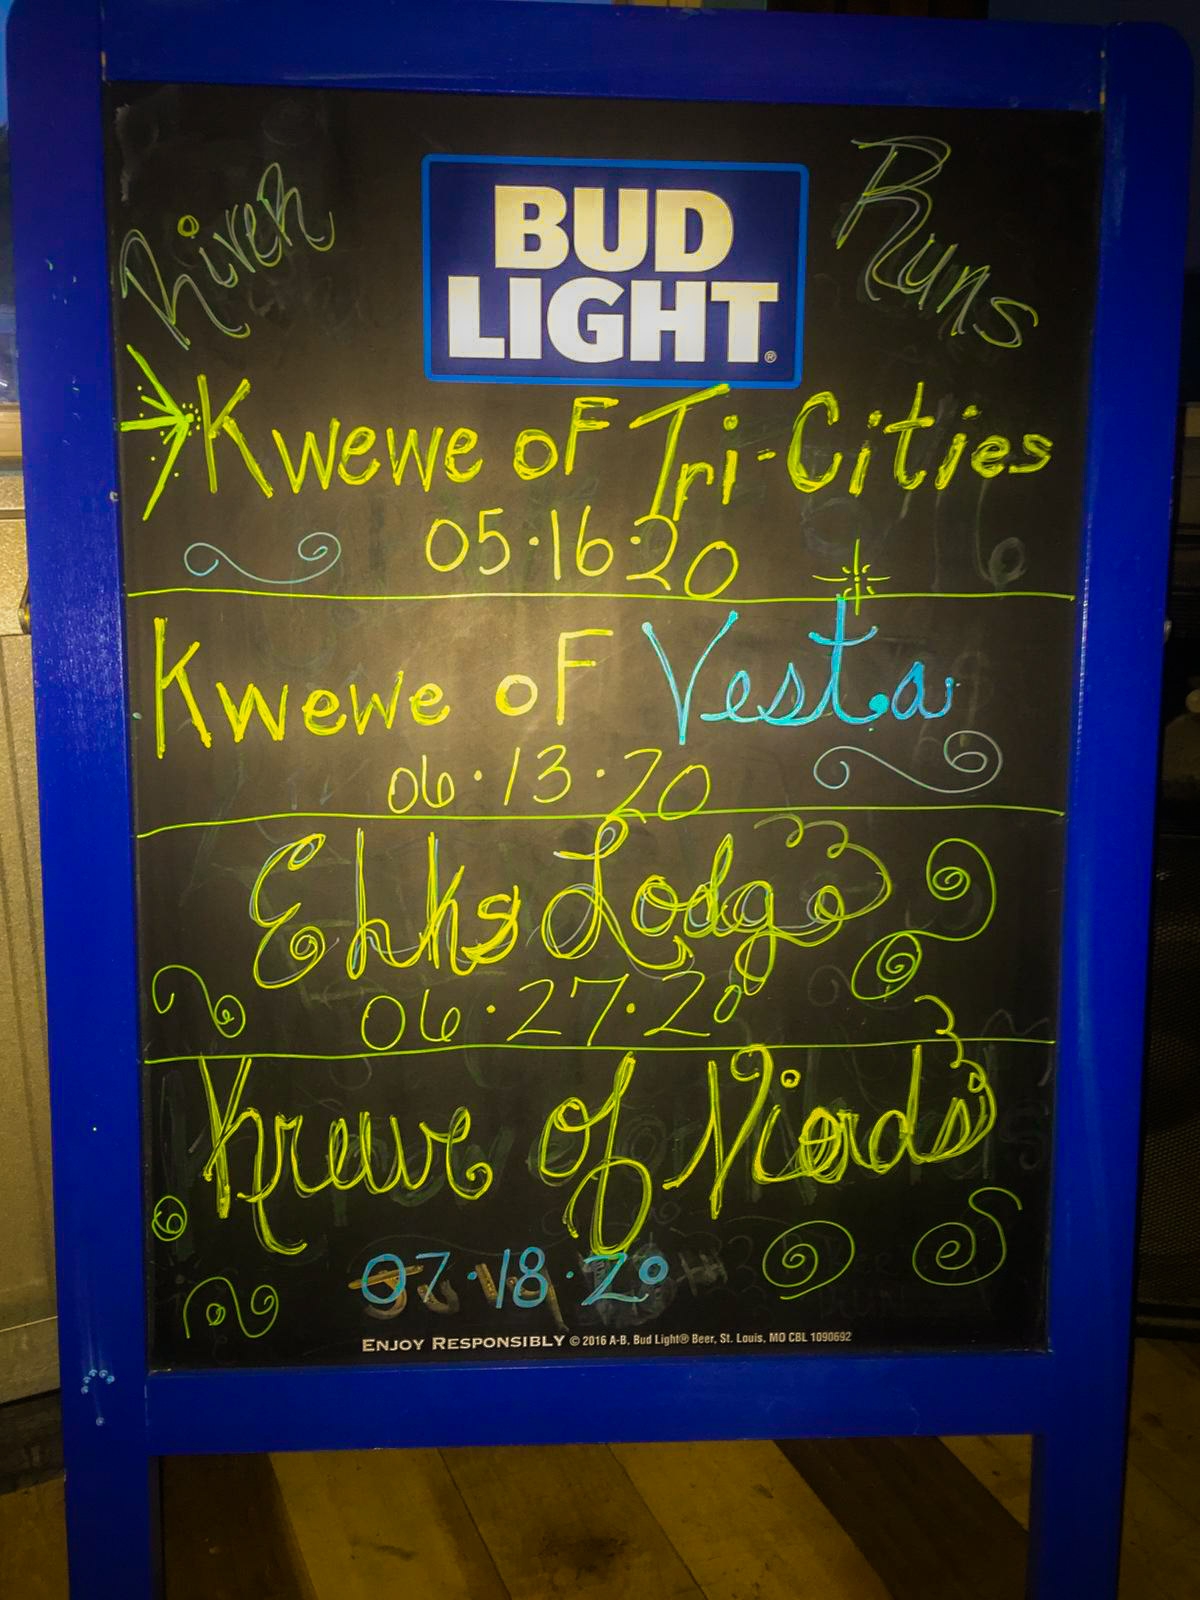 River Runs
BUD
LIGHT®
Kwewe of Tri-Cities
05.16.20
Kwewe of Vesta
06.13.20
Elks Lodge
06.27.20
Krewe of Nierds
07.18.20
ENJOY RESPONSIBLY © 2016 A-B, Bud Light® Beer, St. Louis, MO CBL 1090692